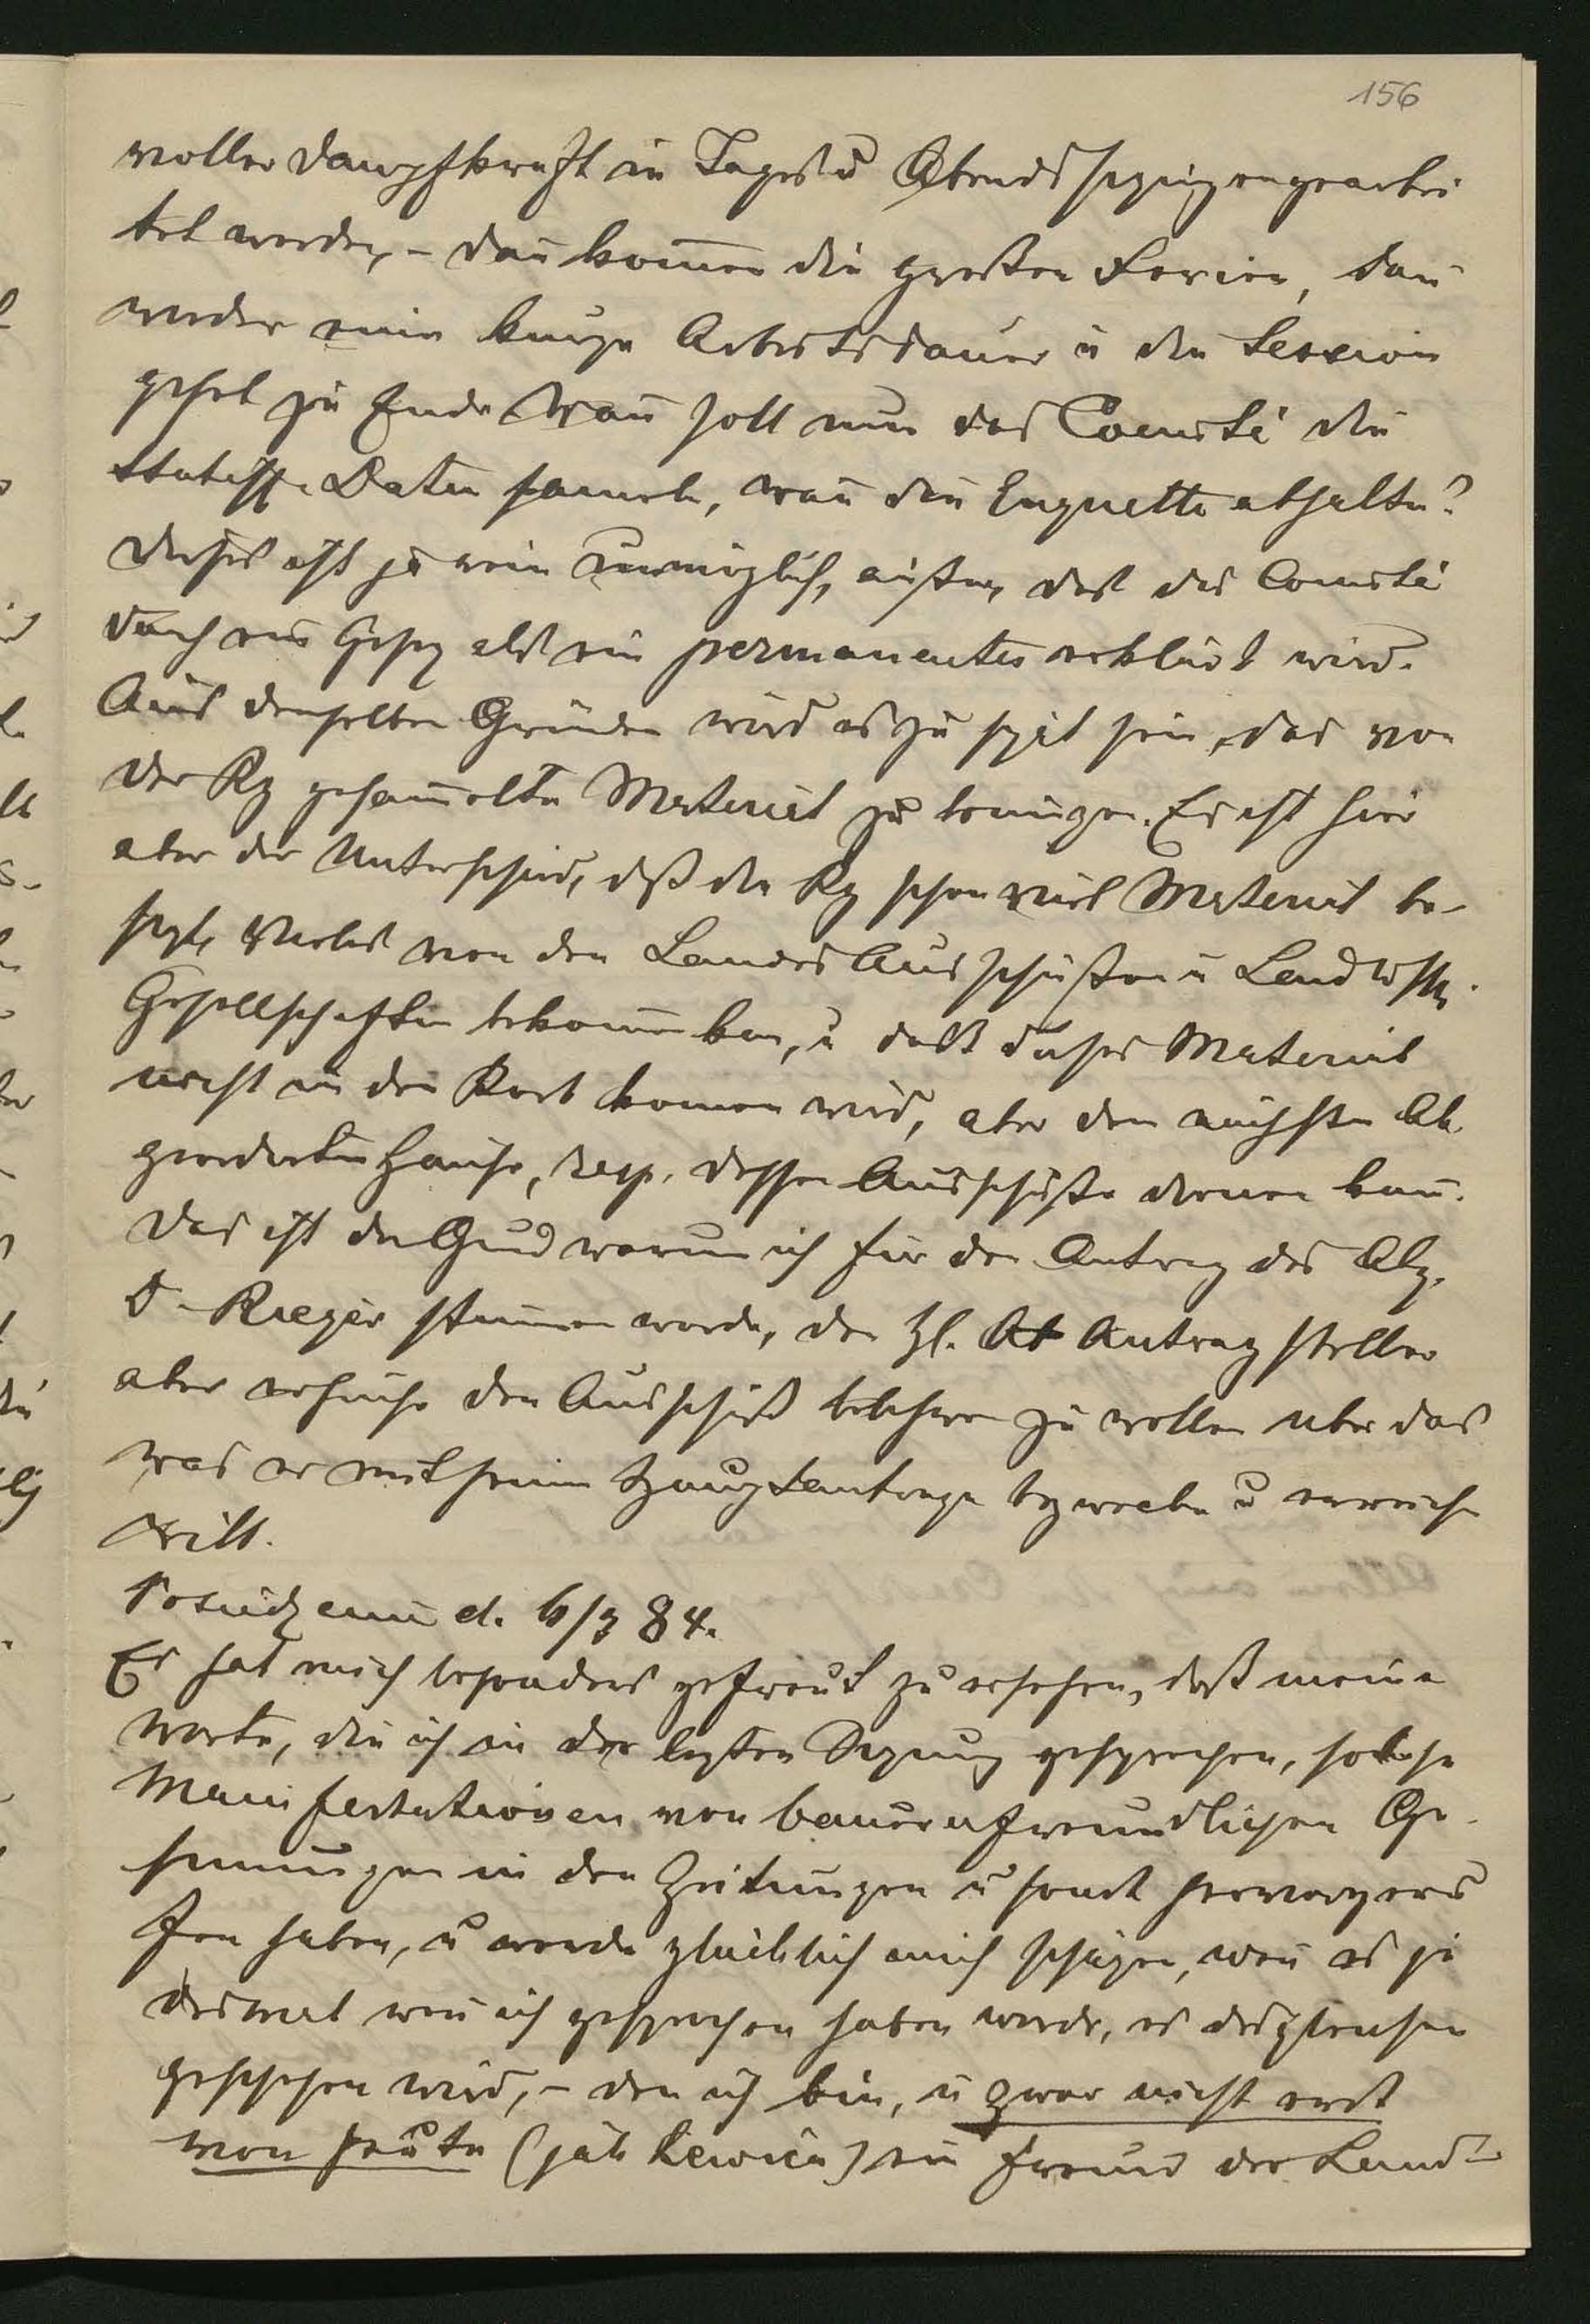 156
voller Dampfkraft in Tages u Abendsitzungen gearbei
tet werden, – dan̄ kom̄en die großen Ferien, dan̄
wieder eine kurze Arbeitsdauer u die Session
gehet zu Ende. Wan̄ soll nun das Comité die
statisti. Daten sam̄eln, wan̄ die Enquette abhalten?
Dieses ist ja rein unmöglich, außer, daß das Comité
durch ein Gesez als ein permanentes erklärt wird.
Aus denselben Gründen wird es zu spät sein, das von
der Rg gesam̄elte Material zu bringen. Es ist hier
aber der Unterschied, daß die Rg schon viel Material be-
sizt, Vieles von den Landes Ausschüßen u Landwsth.
Gesellschaften bekom̄en kan, u daß dieses Material
nicht in den Korb kom̄en wird, aber dem nächsten Ab
geordneten Hause, resp. dessen Ausschuße dienen kan̄.
Das ist der Grund warum ich für den Antrag des Abg.
D. Rieger stim̄en werde, den H. At Antrag steller
aber ersuche den Ausschuß belehren zu wollen über das
was er mit seinem Hauptantrage bezwecken u erreichen
will.
d. 6/3 84.
Es hat mich besonders gefreut zu ersehen, daß meine
Worte, die ich in der lezten Sizung gesprochen, solche
Manifestationen von bauernfreundlichen Ge-
sinnungen in den Zeitungen u sonst hervorgeru
fen haben, u werde glücklich mich schäzen, wen̄ es je
desmal wen̄ ich gesprochen haben werde, es desgleichen
geschehen wird, – den ich bin, u zwar nicht erst
von heute (jak Lewice) ein Freund des Land-